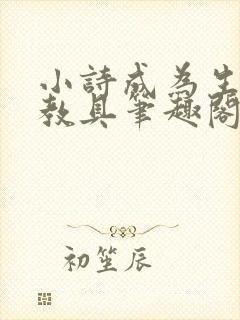 小詩成為生
教具筆趣閣
初笙辰